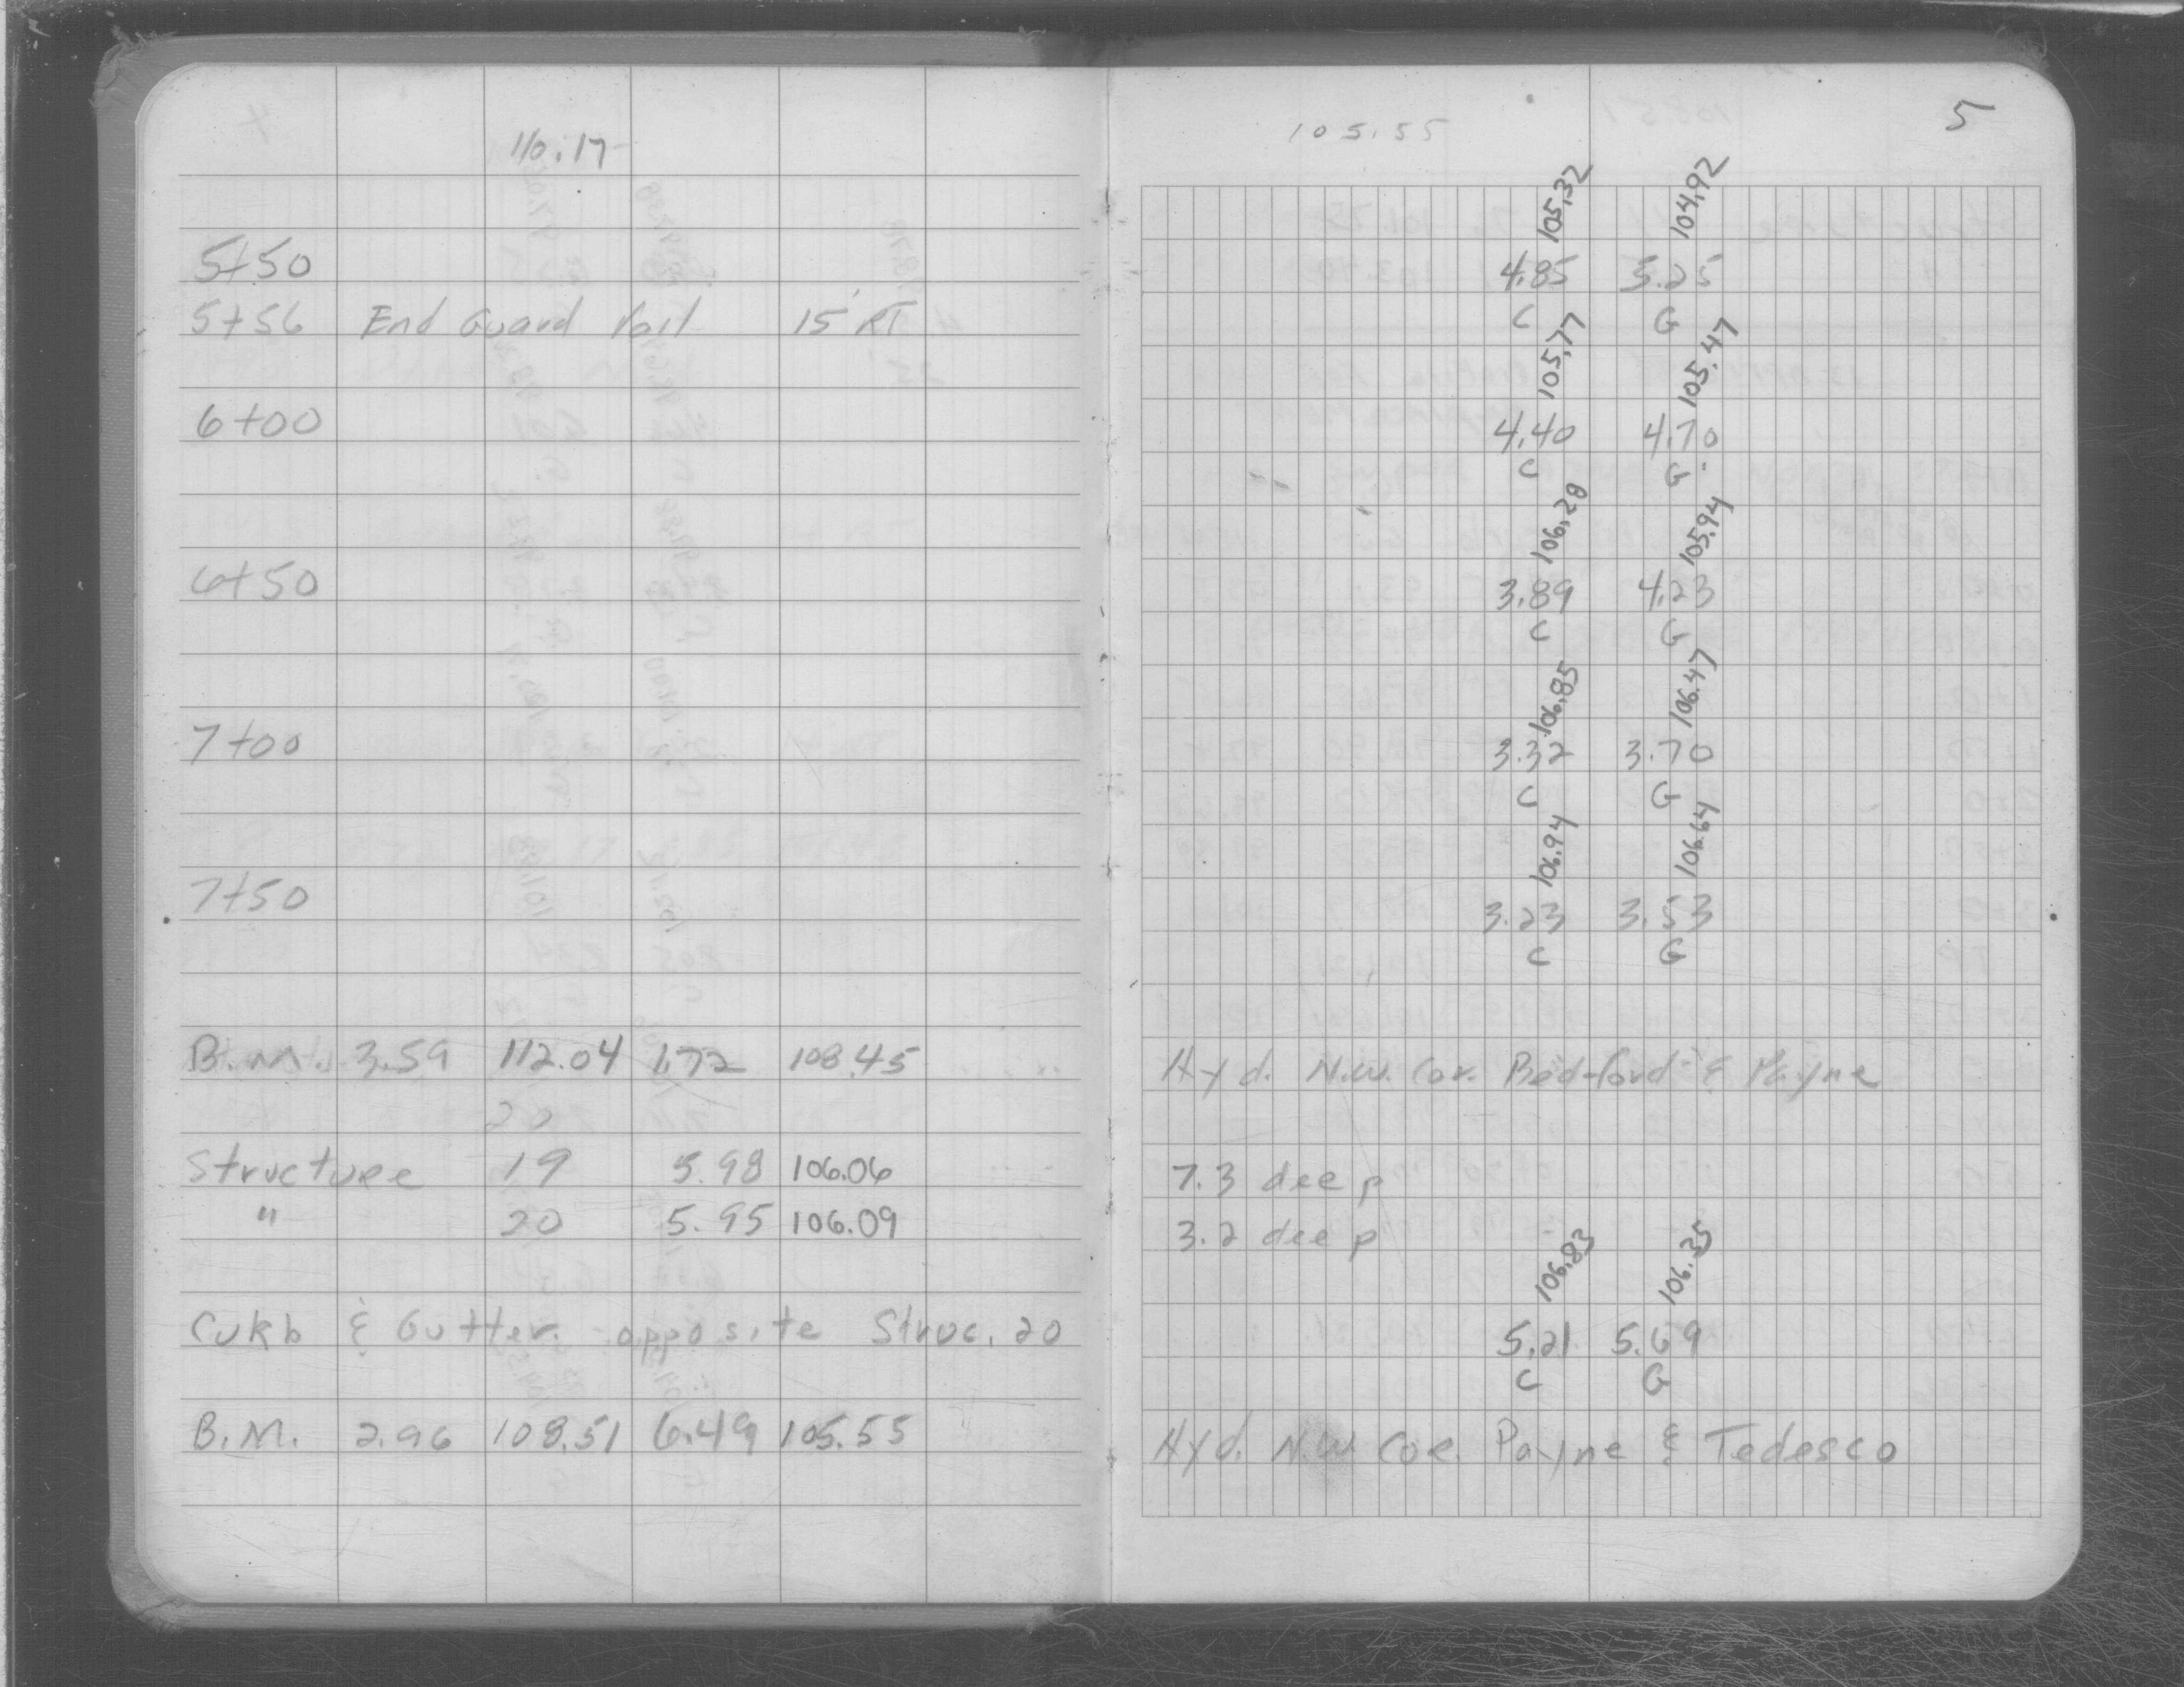 110.17
5+50
5+56 End Guard rail 15' RT
6+00
6+50
7+00
7+50
B.M. 3.59 112.04 1.72 108.45
20
Structure 19 5.98 106.06
" 20 5.95 106.09
Curb & Gutter opposite Struc. 20
B.M. 2.96 108.51 6.49 105.55
105.55 5
105.32 104.92
4.85 5.25
C G
105.77 105.47
4.40 4.70
C G
106.28 105.94
3.89 4.23
C G
106.85 106.47
3.32 3.70
C G
106.94 106.64
3.23 3.53
C G
Hyd. N.W. Cor. Bedford & Payne
7.3 deep
3.2 deep
106.83 106.35
5.21 5.69
C G
Hyd. N.W. Cor. Payne & Tedesco